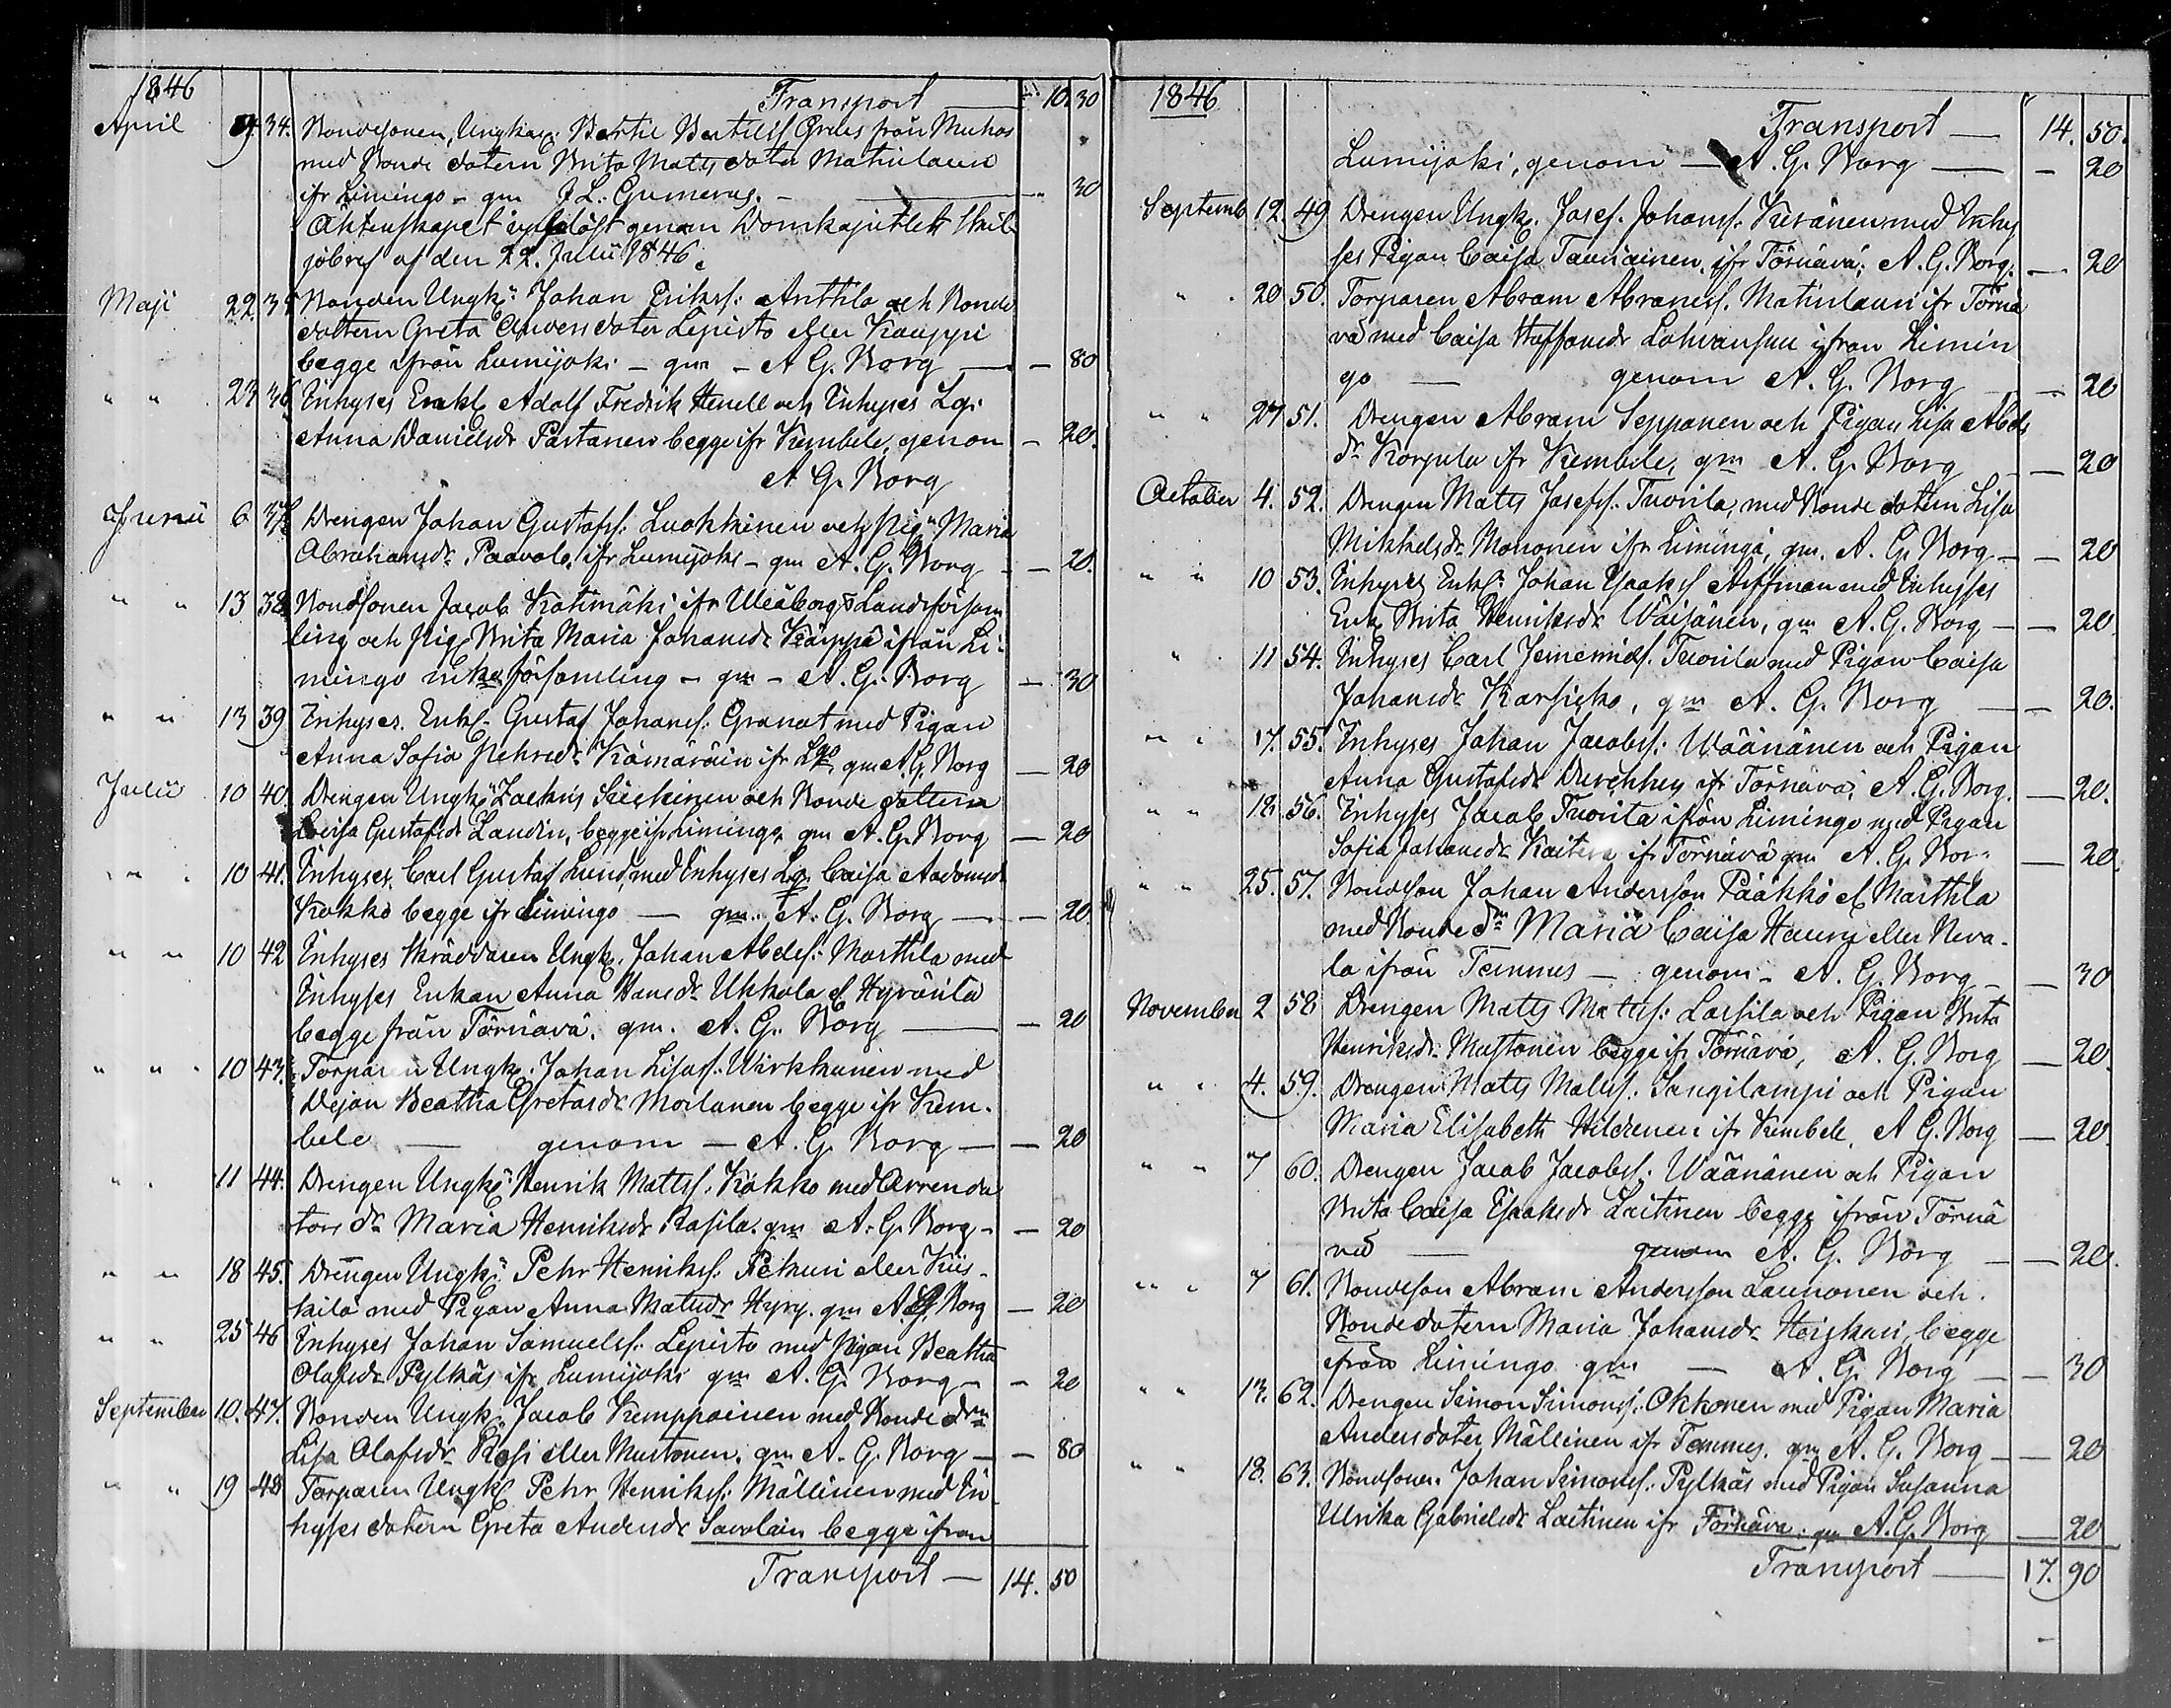 1846
Transport — 10. 30
April 9. 34. Bondesonen, Ungkarl. Bertil Bertilss Grus från Muhos
med Bonde dotern Brita Matts doter Matinlauri
ifr Limingo - gm J. L. Gumerus. — 30
Äktenskapet upplöst genom Domkapitlets Skil-
jobref af den 22. Julii 1846.
Maji 22. 35 Bonden Ungk: Johan Erikss: Anttila och Bonde
dottern Greta Anders doter Lepisto eller Kauppi
begge ifrån Lumijoki - gm - A G. Borg — 80
" " 23 36. Inhyses Enkl. Adolf Fredrik Henell och Inhyses Lgi
Anna Danielsdr Partanen begge ifr Kembele, genom — 20.
A G. Borg
Junii 6 37. Drengen Johan Gustafss: Luokkinen och pign Maria
Abrahamsdr Paavola, ifr Lumijoki - gm A. G. Borg — 20.
" " 13 38. Bondsonen Jacob Katimäki, ifr Uleåborgs Landsförsam-
ling och pig. Brita Maria Johansdr Kärppä ifrån Li-
mingo församling - gm - A. G. Borg — 30
" " 13 39 Inhyses. Enkl- Gustaf Johanss: Granat med Pigan
Anna Sofia Pehrsdr Kämäräin ifr Lgo, gm A G. Borg — 20
Julii 10 40. Drengen Ungk: Zachris Sieskinen och Bonde dottern
Lovisa Gustafsdr Landin, begge ifr Limingo, gm A. G. Borg — 20
" " 10 41. Inhyses. Carl Gustaf Lund, med Inhyses Lg. Caisa Aadamsdr
Kokko begge ifr Limingo — gm. A. G. Borg — 20.
" " 10 42 Inhyses Skräddaren Ungk. Johan Abelss: Marttila med
Inhyses Enkan Anna Hansdr Ukkola el Hyrönilä
begge från Törnävä. gm. A. G. Borg — 20
" " 10 43. Torparen Ungk. Johan Lisass: Wirkkunen med
Dejan Beatha Gretasdr Moilanen begge ifr Kem-
bele — genom — A. G. Borg — 20
" " 11 44. Drengen Ungk: Henrik Mattss. Kokko med Arrenda
tors dr Maria Henriksdr Rasila. gm A. G. Borg - — 20
" " 18 45. Drengen Ungk: Pehr Henrikss: Pekuri eller Kiis-
kilä med Pigan Anna Matsdr Hyry. gm A. G. Borg — 20
" " 25 46 Inhyses Johan Samuelss: Lepisto med pigan Beatha
Olafsdr Pylkäs ifr Lumijoki gm A. G. Borg - — 20
September 10. 47. Bonden Ungk. Jacob Kemppainen med Bonde drn
Lisa Olafsdr Kosi eller Mustonen. gm A. G. Borg — 80
" " 19 48 Torparen Ungk. Pehr Henrikss: Mällinen med In-
hyses dotern Greta Andersdr Savolain begge ifrån
Transport — 14. 50
1846
Transport — 14. 50.
Lumijoki, genom — A. G. Borg — 20
Septemb 12. 49 Drengen Ungk. Josef. Johanss. Keränen med Inhy
ses Pigan Caisa Tauriainen. ifr Törnävä; A. G. Borg. — 20
" . 20 50. Torparen Abram Abramss. Matinlauri ifr Törnä
vä med Caisa Staffansdr Lohvansuu ifran Limin
go — genom A. G. Borg — 20
" " 27 51. Drengen Abram Sepponen och Pigan Lisa Abels
dr Korpula ifr Kembele, gm A. G. Borg — 20
October 4. 52. Drengen Matts Josefss. Tuorila, med Bonde dotern Lisa
Mikkelsdr Mononen ifr Limingo, gm. A. G. Borg — 20
" " 10 53. Inhyses Enkl: Johan Isakss Aiffman med Inhyses
Enk. Brita Henriksdr Wäisänen, gm A. G. Borg — 20.
" . 11 54. Inhyses Carl Jeremiass. Tuorila med Pigan Caisa
Johansdr Karsicko, gm A. G. Borg — 20.
" " 17. 55. Inhyses Johan Jacobss: Wäänänen och Pigan
Anna Gustafsdr ifr Törnävä, A. G. Borg. — 20.
" " 18 56. Inhyses Jacob Tuorila ifrån Limingo med Pigan
Sofia Johansdr Kaitera ifr Törnävä gm A. G. Bor — 20.
" " 25. 57. Bondeson Johan Andersson Pääkkö el Marttila
med Bonde drn Maria Caisa Haury eller Neva-
la ifrån Temmes — genom - A. G. Borg - — 30
November 2 58 Drengen Matts Mattss: Lassila och Pigan Brita
Henriksdr Mustonen begge ifr Törnävä, A. G. Borg — 20.
" " 4. 59. Drengen Matts Mattss. Sangilampi och Pigan
Maria Elisabeth Hildenen ifr Kembele, A G. Borg — 20.
" " 7 60. Drengen Jacob Jacobss; Wäänänen och Pigan
Brita Caisa Isaksdr Laitinen begge ifrån Törnä
vä — genom A. G. Borg — 20.
" " 7 61. Bondeson Abram Andersson Launonen och.
Bondedotern Maria Johansdr Heiskari, begge
ifrån Limingo gm — A. G. Borg — 30
" " 13. 62. Drengen Simon Simonss: Okkonen med Pigan Maria
Andersdoter Mällinen ifr Temmes. gm A. G. Borg — 20
" " 18. 63. Bondsonen. Johan Simonss: Pylkäs med Pigan Susanna
Ulrika Gabrielsdr Laitinen ifr Törnävä. gm A. G. Borg — 20
Transport — 17. 90